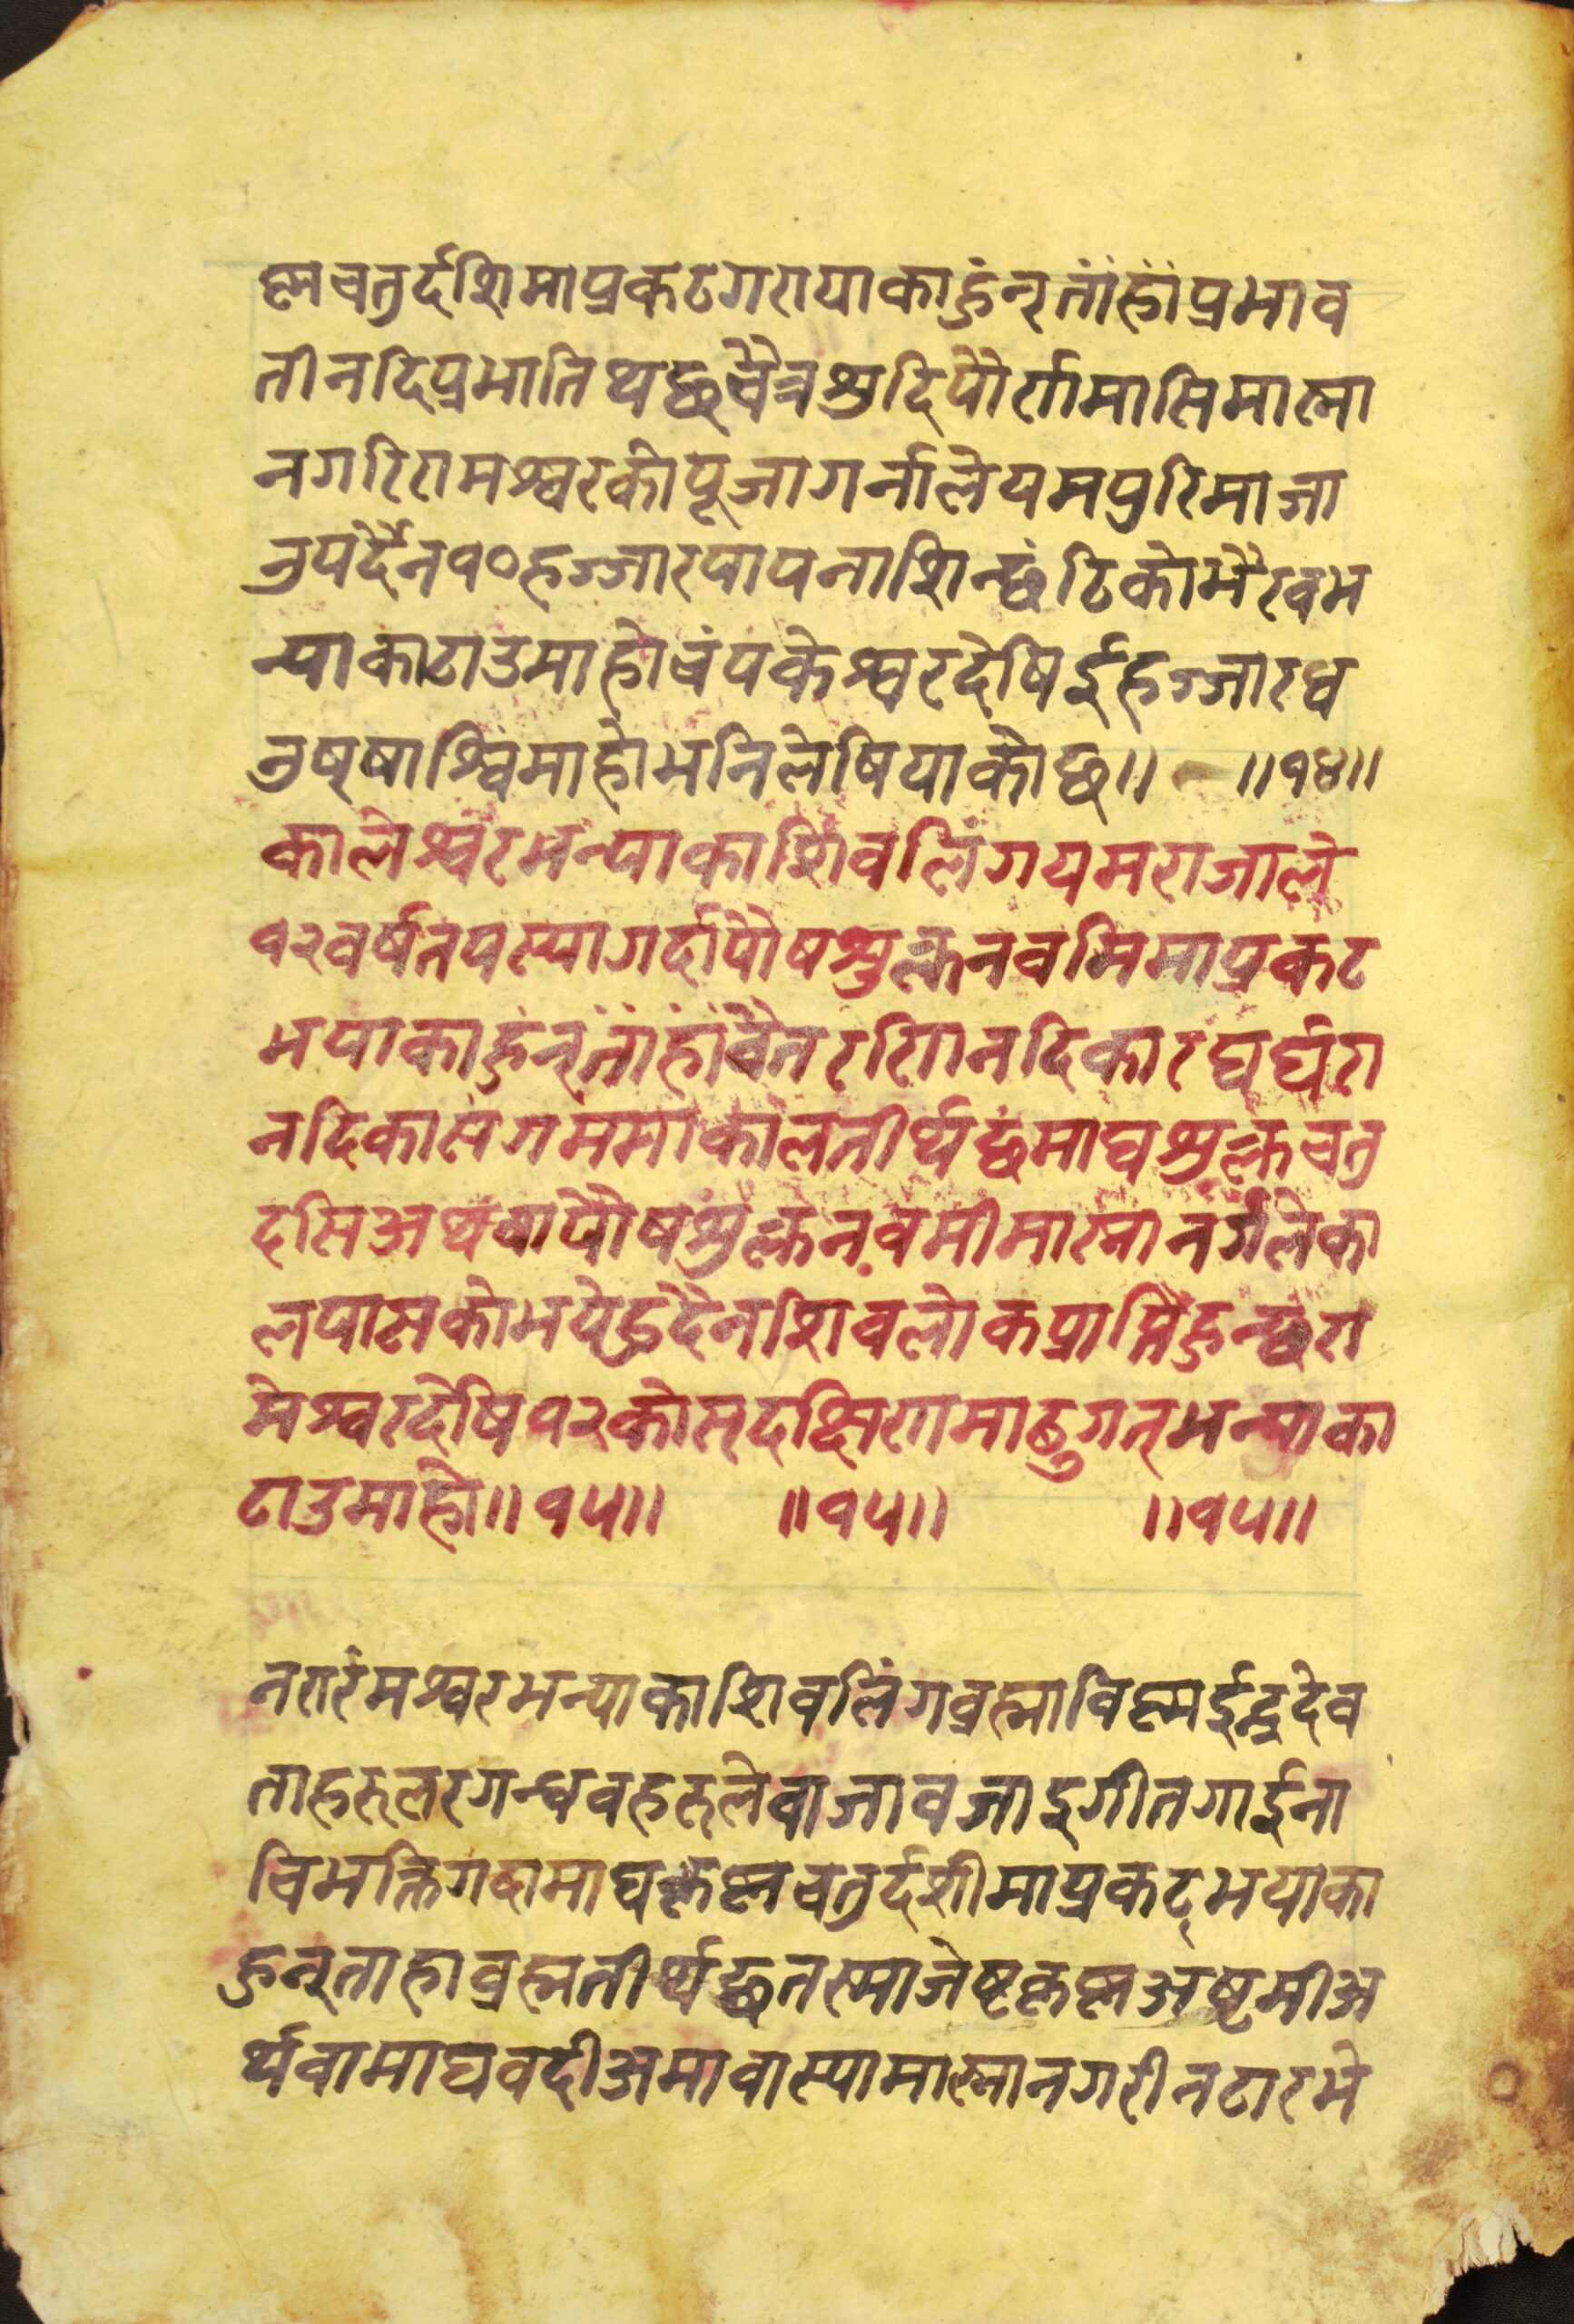 ष्णचतुर्दशिमाप्रकटगरायाकाहुंन्र्तांहांप्रभाव
तीनदिप्रभातिथछचैत्रश्रुदिपौर्णमासिमास्ना
नगरिरामश्वरकोपूजागर्नालेयमपुरिमाजा
नुपर्दैन१०हज्जारपापनाशिन्छंठिकोभैरवभ
न्याकाटाउमाहोचंपकेश्वरदेषिईहज्जारध
नुष्षाश्विंमाहोभनिलेषियाकोछ॥ ॥१४॥
कालेश्वंरभन्याकाशिवलिंगयमराजाले
१२वर्षतपस्यागर्दापौषश्रुक्लनवमिमाप्रकट
भयाकाहुंन्तांहांवैतररिणनदिकारघर्घरा
नदिकासंगममाकालतीर्थछंमाघश्रुक्लचतु
दसिअथवापौषश्रुक्लनवमीमास्नानर्गलेका
लपासकोभयेहुदैनशिवलोकप्राप्तिहुन्छरा
मेश्वरदेषि१२कोसदक्षिणमाठुगत्भन्याका
टाउमाहो॥१५॥ ॥१५॥ ॥१५॥
नरारंमश्वरभन्याकाशिवलिंगव्रह्माविष्णईंद्रदेव
ताहरुलरगन्धवहरुलेवाजावजाइगीतगाईना
चिभक्तिगदामाघकृष्णचतुर्दशीमाप्रकट्भयाका
हुन्र्ताहाव्रह्मतीर्थछतस्माजेष्टकृष्णअष्टमीअ
र्थवामाघवदीअमावास्यामास्नानगरीनटारमे